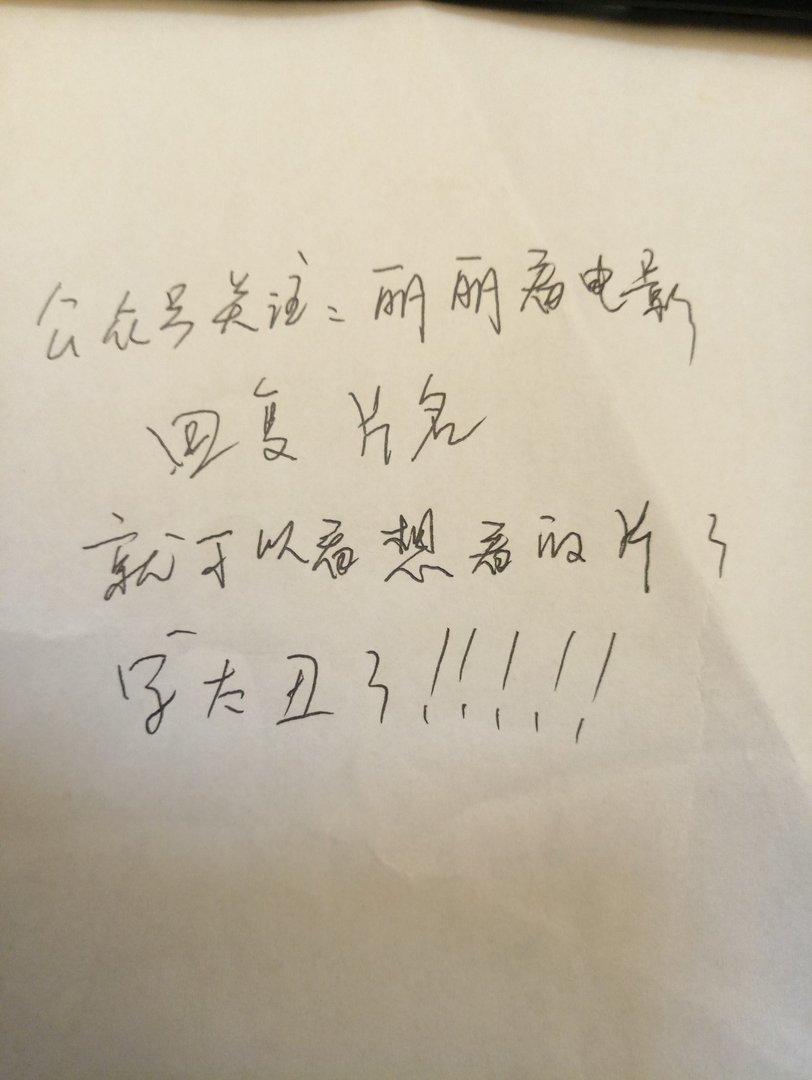 公众号关注：丽丽看电影
回复 片名
就可以看想看的片了
字太丑了!!!!!!